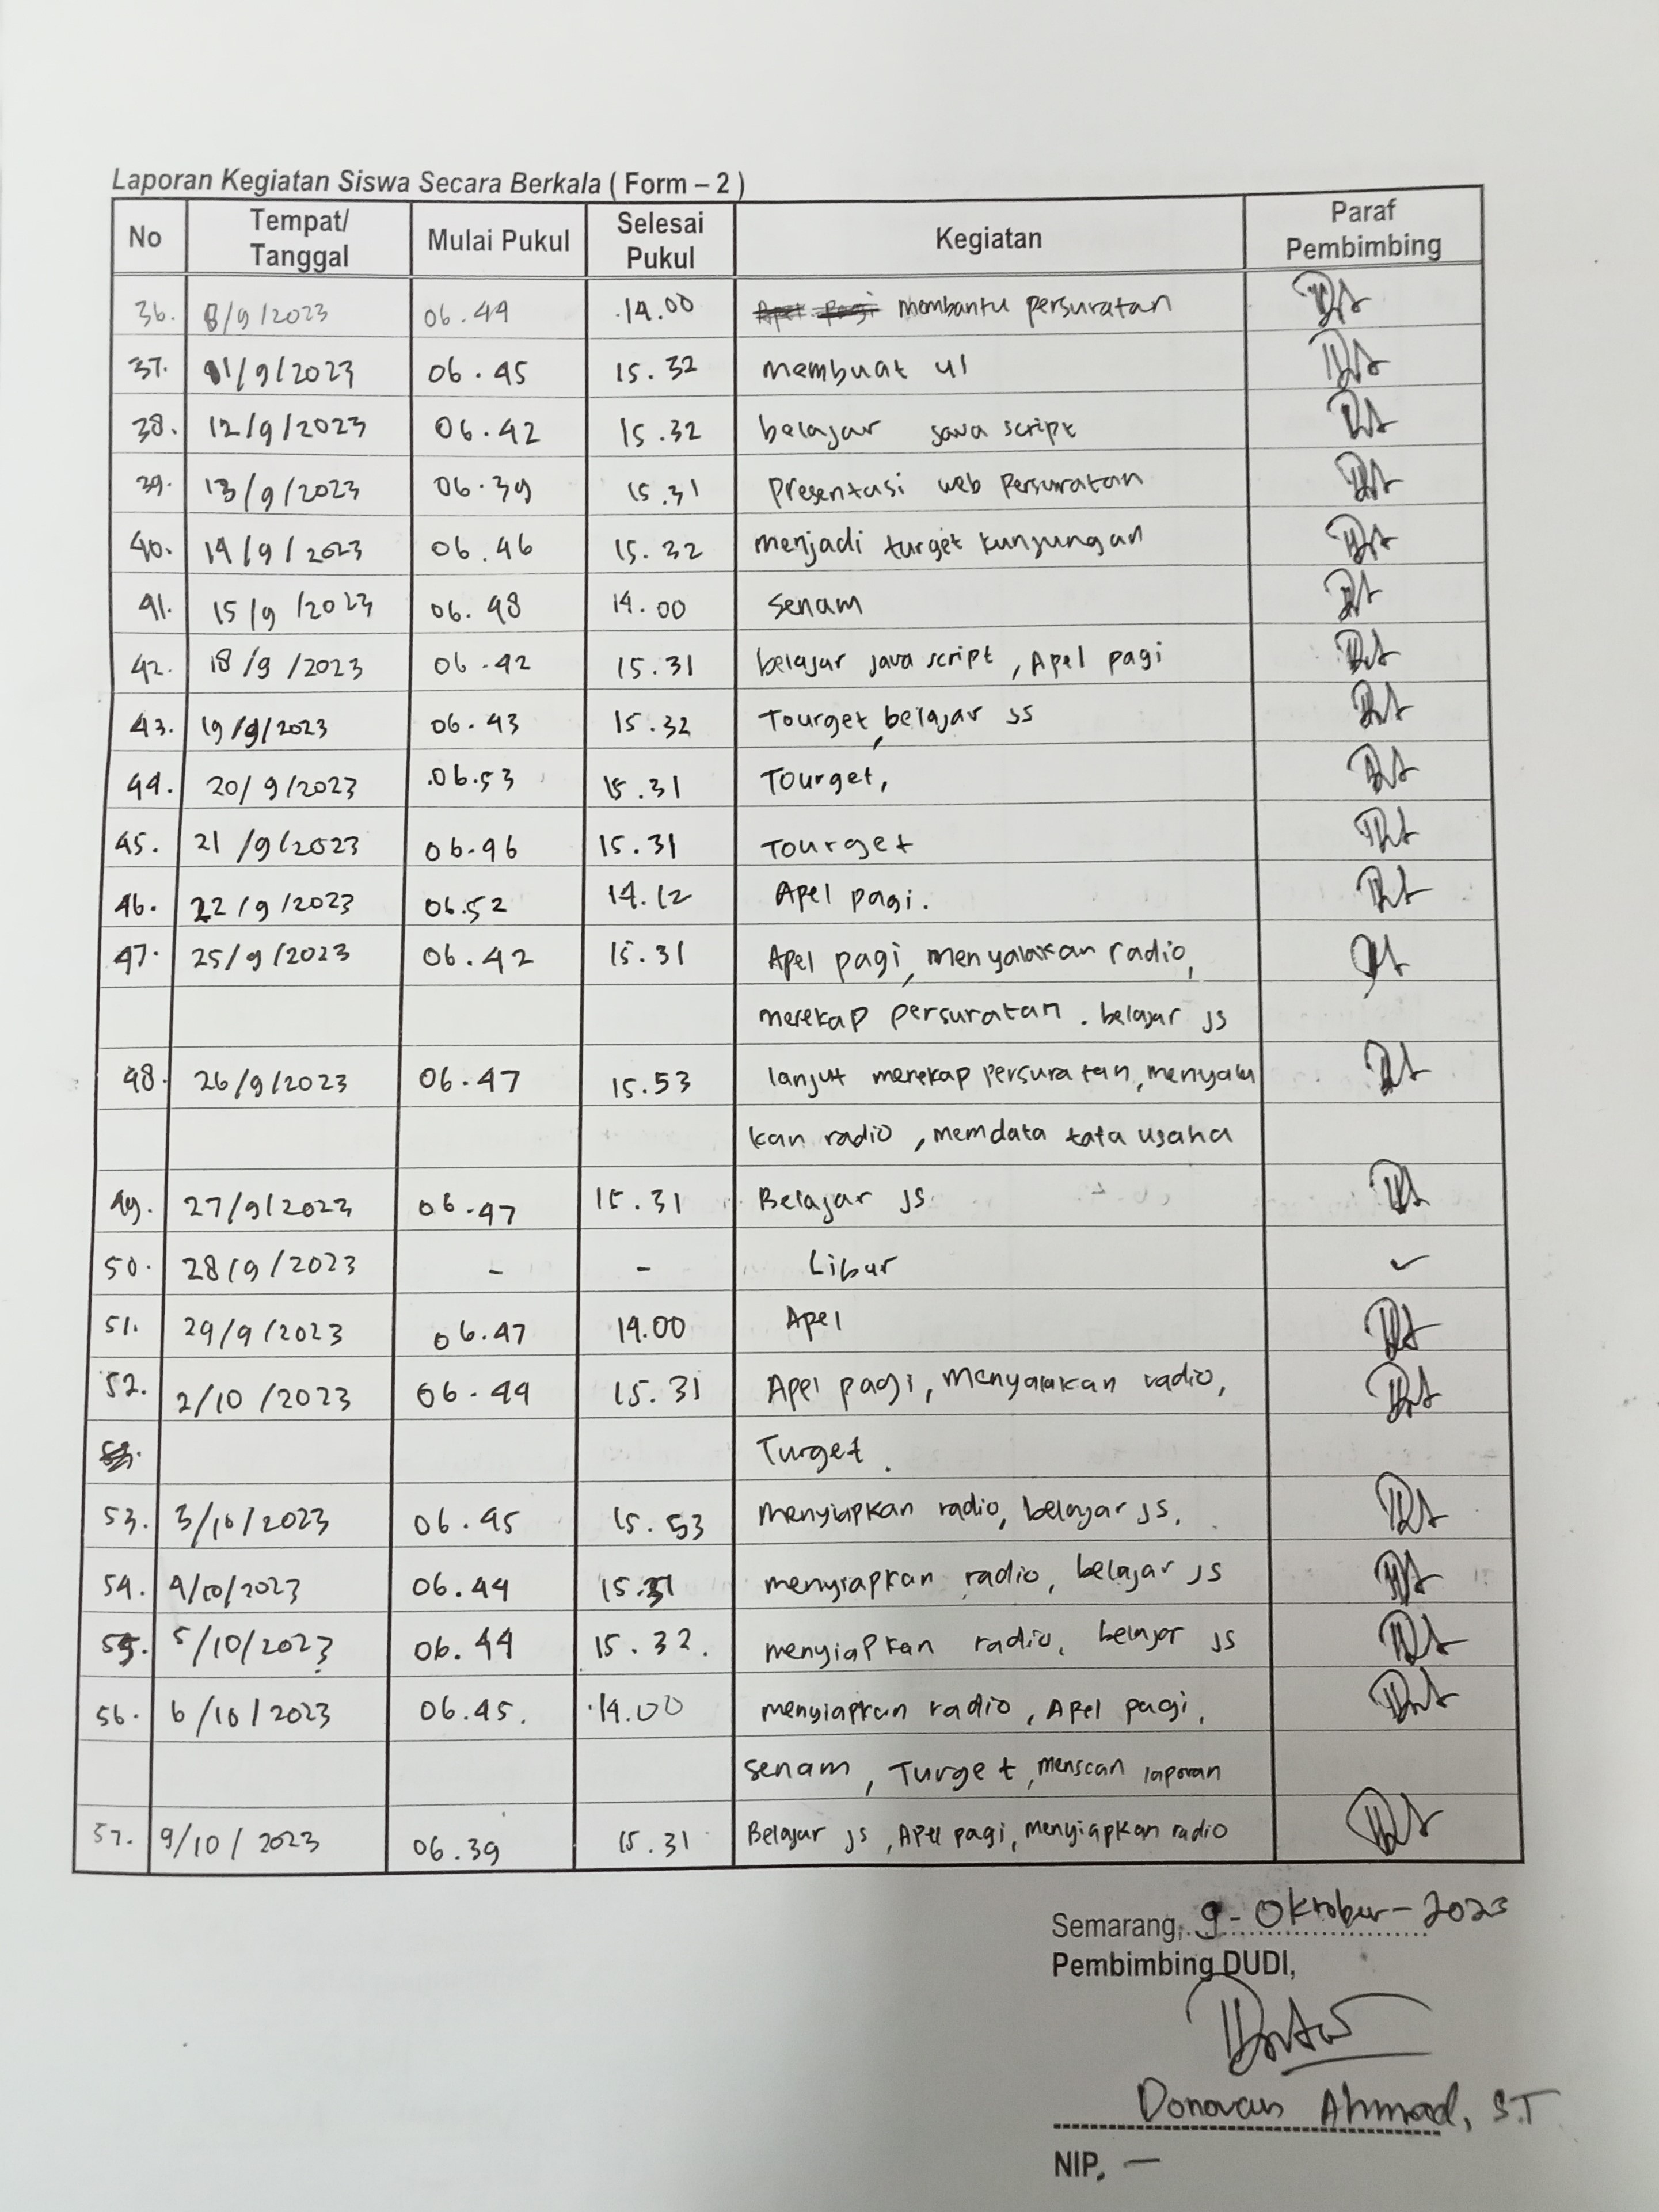 Laporan Kegiatan Siswa Secara Berkala ( Form – 2 )
No Tempat/ Tanggal Mulai Pukul Selesai Pukul Kegiatan Paraf Pembimbing
36. 8/9/2023 06.44 14.00 Apel pagi membantu persuratan
37. 11/9/2023 06.45 15.32 membuat ul
38. 12/9/2023 06.42 15.32 belajar java script
39. 13/9/2023 06.39 15.31 Presentasi web Persuratan
40. 14/9/2023 06.46 15.32 menjadi turget kunjungan
41. 15/9/2023 06.48 14.00 Senam
42. 18/9/2023 06.42 15.31 belajar java script, Apel pagi
43. 19/9/2023 06.43 15.32 Tourget, belajar js
44. 20/9/2023 06.53 15.31 Tourget,
45. 21/9/2023 06.46 15.31 Tourget
46. 22/9/2023 06.52 14.12 Apel pagi.
47. 25/9/2023 06.42 15.31 Apel pagi, menyalakan radio,
merekap persuratan. belajar js
48. 26/9/2023 06.47 15.53 lanjut merekap persuratan, menyala
kan radio, memdata tata usaha
49. 27/9/2023 06.47 15.31 Belajar js
50. 28/9/2023 - - Libur
51. 29/9/2023 06.47 14.00 Apel
52. 2/10/2023 06.44 15.31 Apel pagi, menyalakan radio,
53. Turget.
53. 3/10/2023 06.45 15.53 menyiapkan radio, belajar js,
54. 4/10/2023 06.44 15.31 menyiapkan radio, belajar js
55. 5/10/2023 06.44 15.32. menyiapkan radio, belajar js
56. 6/10/2023 06.45. 14.00 menyiapkan radio, Apel pagi,
senam, Turget, menscan laporan
57. 9/10/2023 06.39 15.31 Belajar js, Apel pagi, menyiapkan radio
Semarang, 9 - Oktober - 2023
Pembimbing DUDI,
Donovan Ahmad, S.T
NIP. —